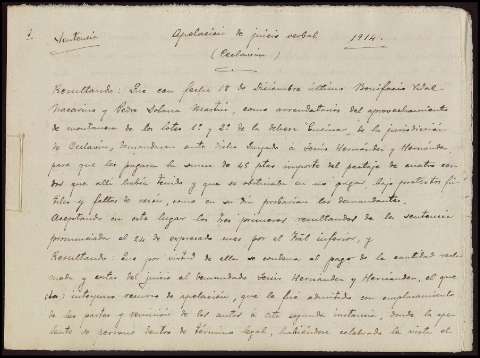 Sentencia
Apelación de juicio verbal 1914.
(Ceclavín)
Resultando: Que con fecha 18 de Diciembre último Bonifacio Vidal
Nacarino y Pedro Solana Martín, como arrendatarios del aprovechamiento
de montanera de los lotes 1º y 2º de la dehesa Encina, de la jurisdicción
de Ceclavín, demandaron ante dicho Juzgado á Jesús Hernández y Hernández,
para que les pagara la suma de 45 ptas importe del pastaje de cuatro cer-
dos que allí había tenido y que se obstinaba en no pagar, bajo pretextos fú-
tiles y faltos de razón, como en su día probarían los demandantes.
Aceptando en este lugar los tres primeros resultandos de la sentencia
pronunciada el 24 de expresado mes por el Tral inferior, y
Resultando: Que por virtud de ella se condena al pago de la cantidad recla-
mada y costas del juicio al demandado Jesús Hernández y Hernández, el que
interpuso recurso de apelación, que le fué admitido con emplazamiento
de las partes y remisión de los autos á esta segunda instancia, donde la ape-
lante se personó dentro de término legal, habiéndose celebrado la vista el